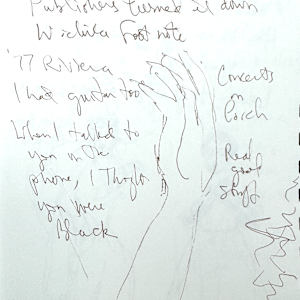 Publishers turned it down
Wichita Foot note
'77 Riviera
I had guitar too
When I talked to
you on the
phone, I Thought
you were
black
Concerts
on
Porch
Real
good
stuff